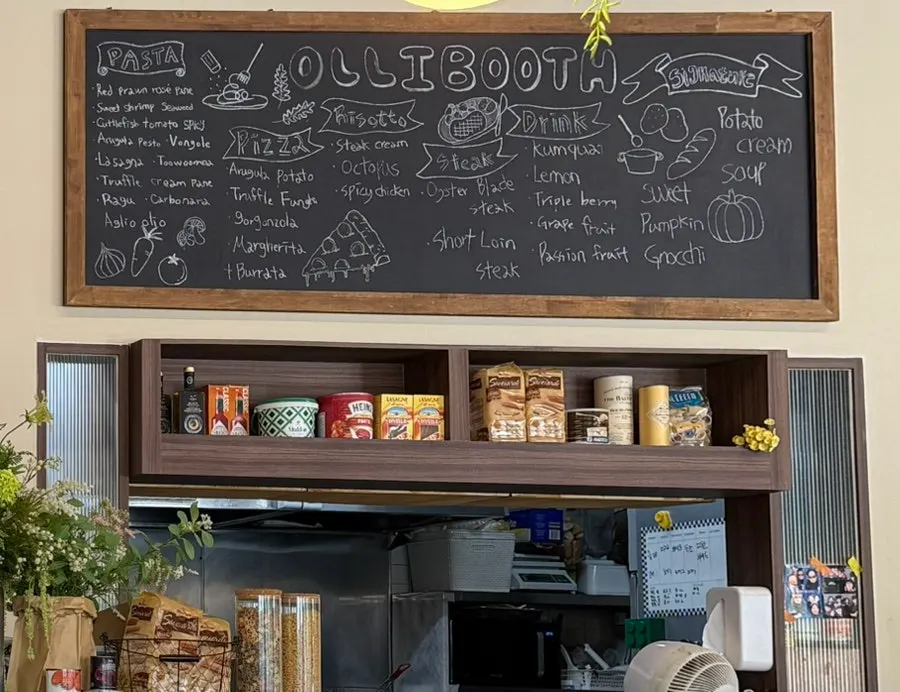 OLLIBOOTH
PASTA
· Red prawn rosé Pane
· Sweet shrimp Seaweed
· Cuttlefish tomato spicy
· Arugula Pesto · Vongole
· Lasagna · Toowoomba
· Truffle cream Pane
· Ragu · Carbonara
Aglio olio
Pizza
· Arugula Potato
· Truffle Fungi
· gorgonzola
· Margherita
+ Burrata
Risotto
· Steak cream
· Octopus
· spicy chicken
Steak
· Oyster Blade
steak
· Short Loin
steak
Drink
· Kumquat
· Lemon
· Triple berry
· Grape fruit
· Passion fruit
Signature
Potato
cream
soup
sweet
Pumpkin
Gnocchi
HEINZ
LASAGNE